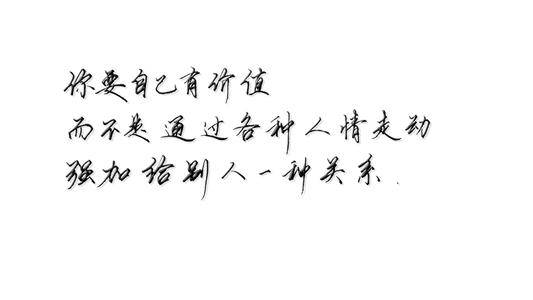 你要自己有价值
而不是通过各种人情走动
强加给别人一种关系.